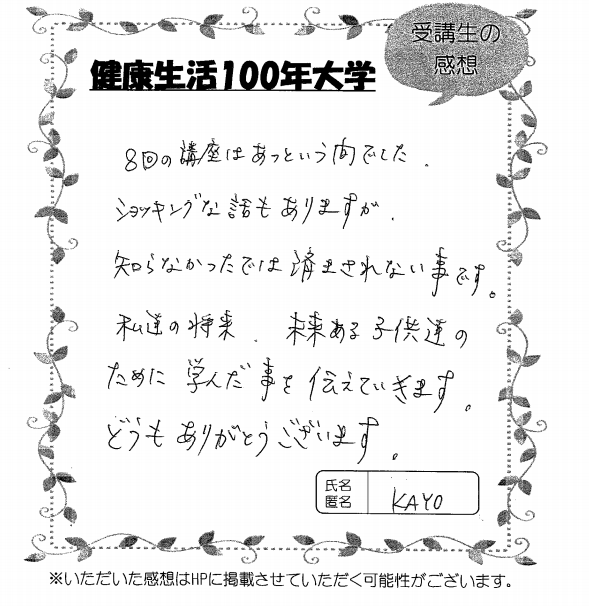 受講生の
感想
健康生活100年大学
8回の講座はあっという間でした.
ショッキングな話もありますが.
知らなかったでは済まされない事です。
私達の将来. 未来ある子供達の
ために 学んだ事を伝えていきます。
どうもありがとうございます。
氏名
匿名
KAYO
※いただいた感想はHPに掲載させていただく可能性がございます。